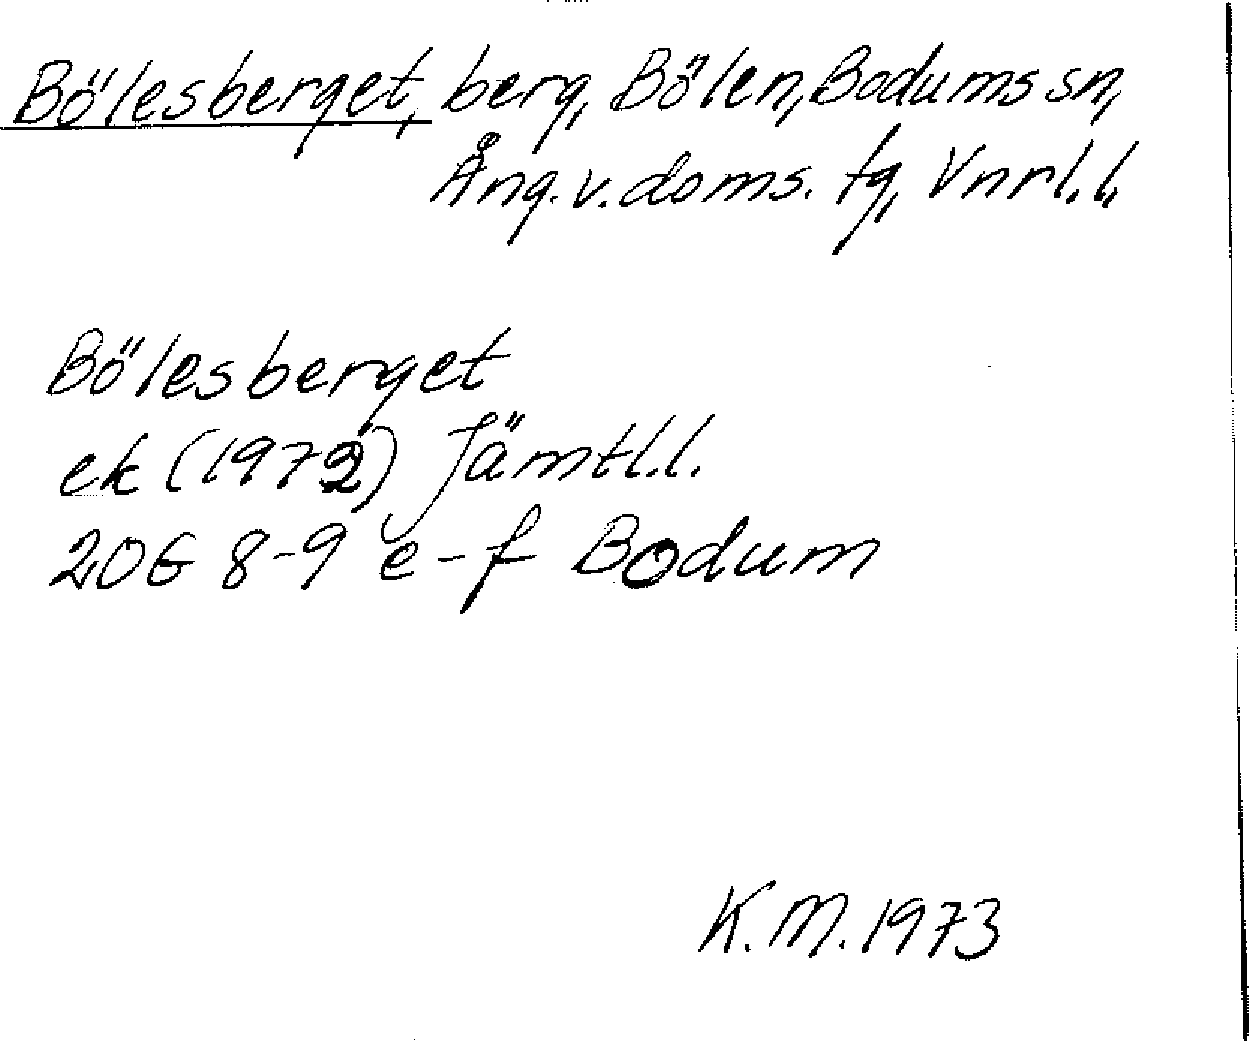 Bölesberget, berg, Bölen, Bodums sn,
Ång. v. doms. tg, Vnrl. l.
Bölesberget
ek (1972) Jämtl. l.
20G 8-9 e-f Bodum
K. M. 1973